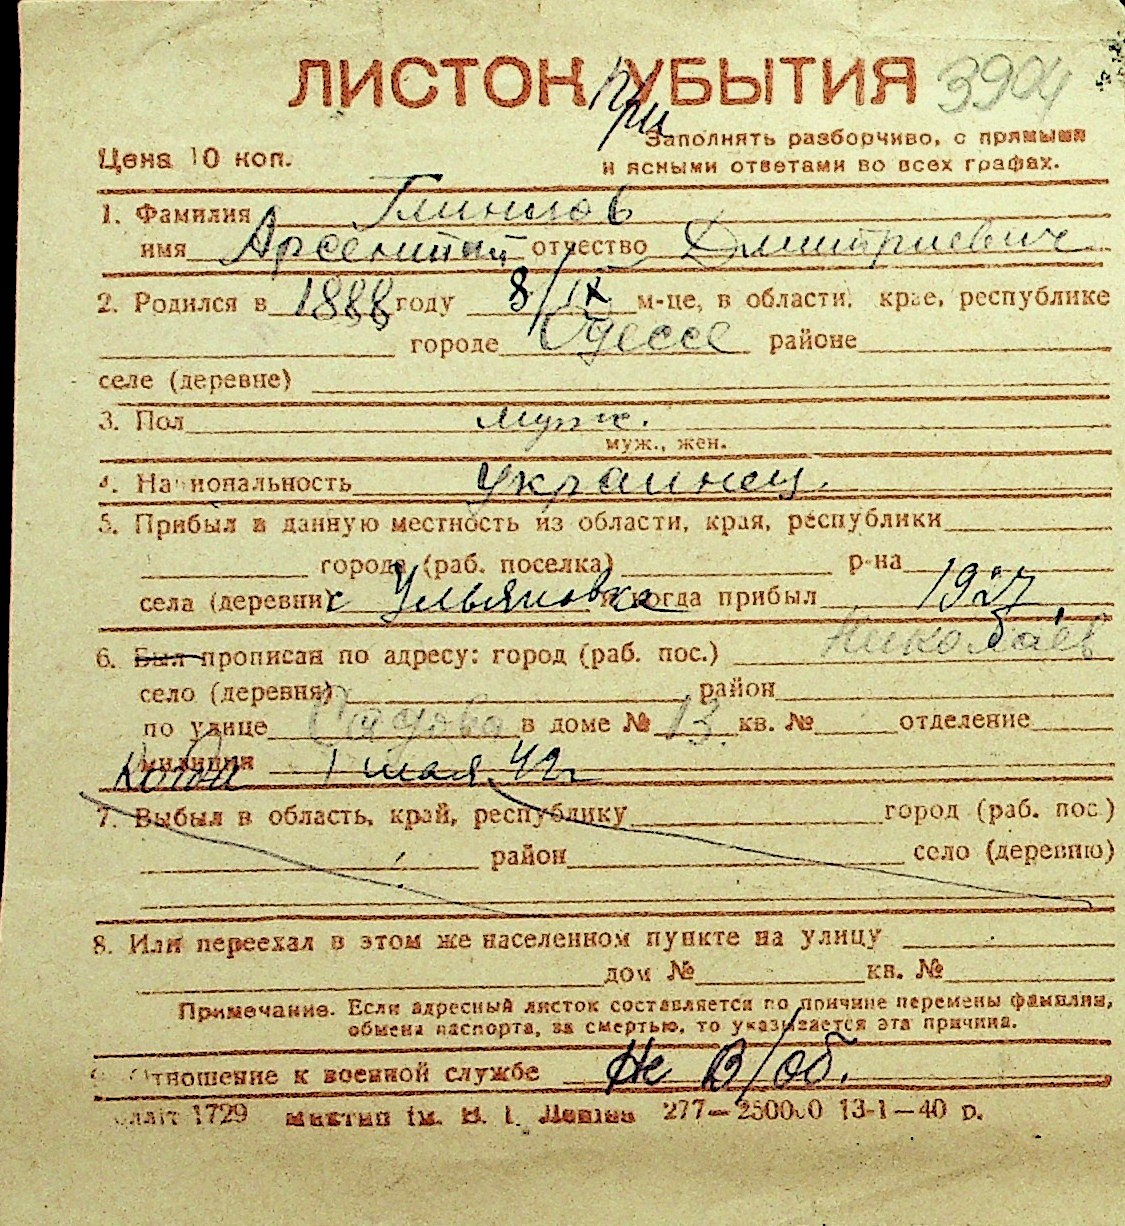 ЛИСТОК УБЫТИЯ 3904
при
Заполнять разборчиво, с прямыми
Цена 10 коп.
и ясными ответами во всех графах.
1. Фамилия
имя отчество Дмитриевич
2. Родился в 1888 году 8/IX м-це, в области, крае, республике
городе Одессе районе
селе (деревне)
3. Пол муж.
муж., жен.
4. Национальность украинец.
5. Прибыл в данную местность из области, края, республики
города (раб. поселка) р-на
села (деревни) с Ульяновка и когда прибыл 1927
6. Был прописан по адресу: город (раб. пос.) Николаев
село (деревня) район
по улице Садова в доме № 13 кв. № отделение
милиции когда 1 мая 42г
7. Выбыл в область, край, республику город (раб. пос.)
район село (деревню)
8. Или переехал в этом же населенном пункте на улицу
дом № кв. №
Примечание. Если адресный листок составляется по причине перемены фамилии,
обмена паспорта, за смертью, то указывается эта причина.
9. Отношение к военной службе Не в/об.
1729 ім. В. І. Леніна 277—250000 13-1—40 р.